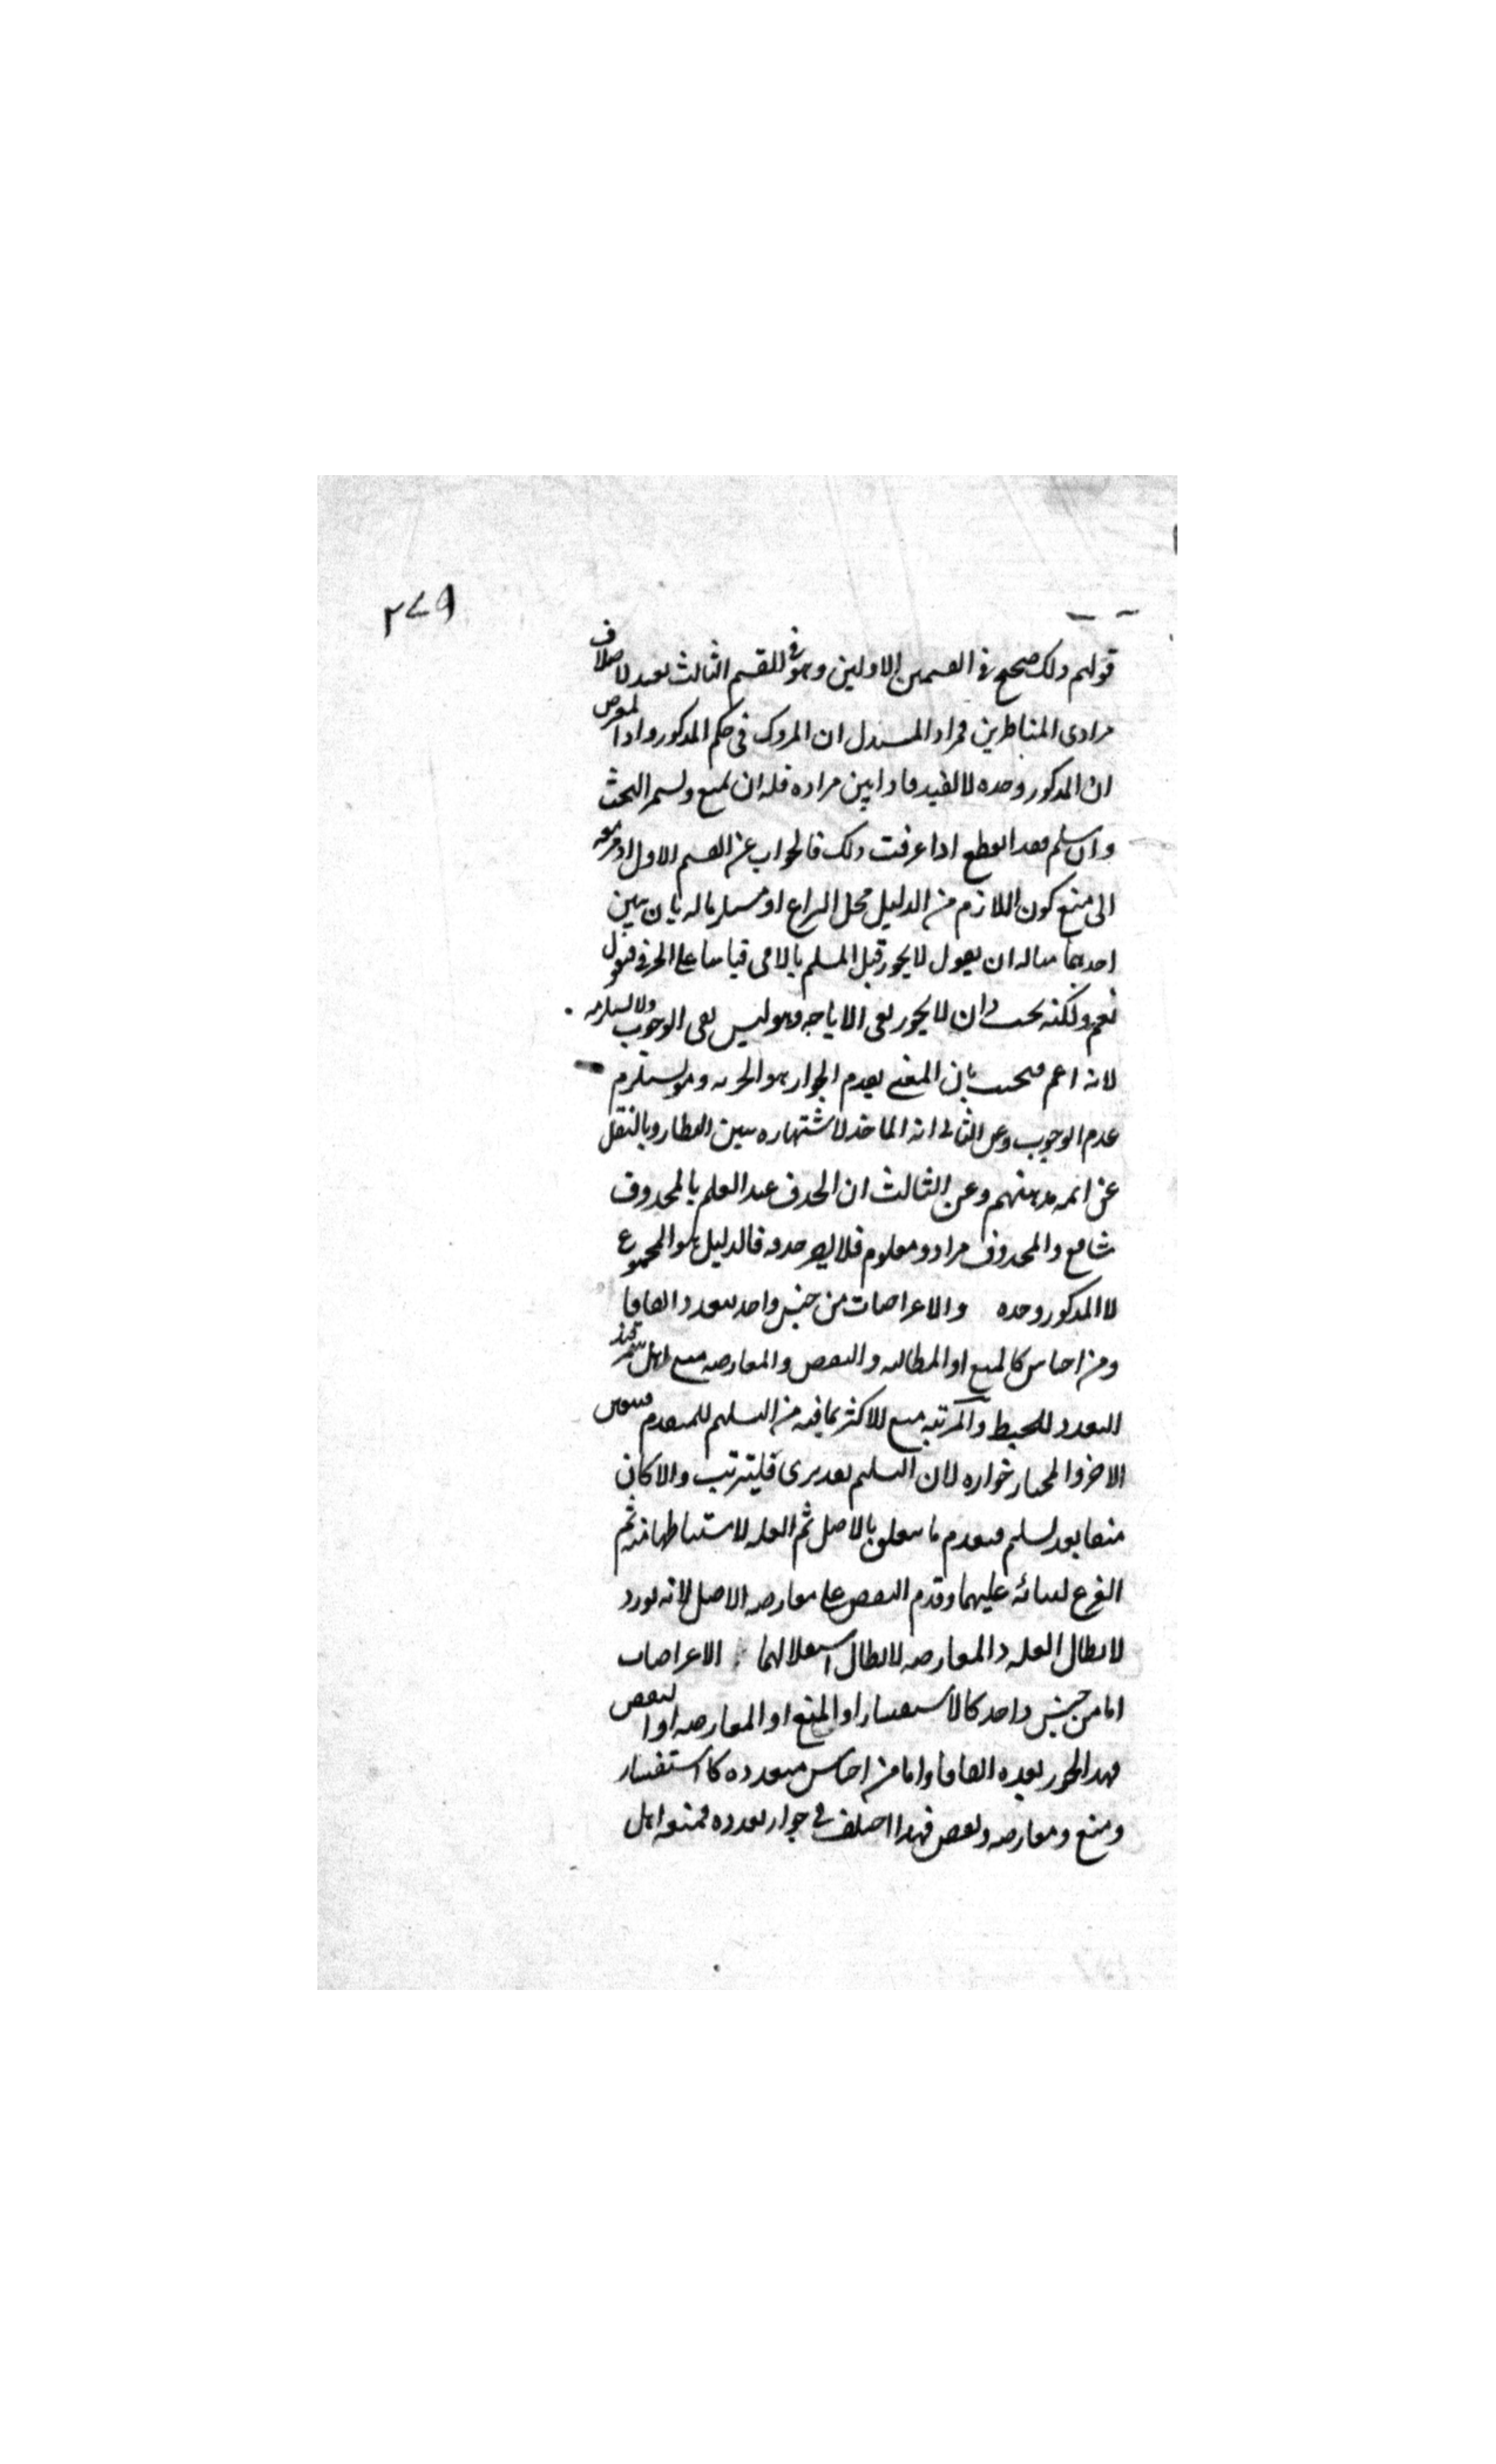 ٢٧٩
قولهم وذلك صحيح في القسمين الاولين وهو في القسم الثالث بعيد لاختلاف
مرادي المتناظرين فمراد المستدل ان المتروك في حكم المذكور ومراد المعترض
ان المذكور وحده لا يفيد فاذا بين مراده فله ان يمنع ويستمر البحث
وان سلم فقد انقطع اذا عرفت ذلك فالجواب عن القسم الاول
الى منع كون اللازم من الدليل محل النزاع او مستلزما له بان يبين
احدهما مثاله ان يقول لا يجوز قتل المسلم بالذمي قياسا على الحربي فنقول
نعم ولكنه يجب فان لا يجوز نفي الاباحه وهو ليس نفي الوجوب ولا يستلزمه
لانه اعم فيجيب بان المعني بعدم الجواز هو الحرمه وهو يستلزم
عدم الوجوب وعن الثاني انه الماخذ لاشتهاره بين النظار وبالنقل
عن ائمه مذهبهم وعن الثالث ان الحذف عند العلم بالمحذوف
شايع والمحذوف مراد ومعلوم فلا يضر حذفه فالدليل هو المجموع
لا المذكور وحده والاعتراضات من جنس واحد يتعدد اتفاقا
ومن اجناس كالمنع او المطالبه والنقض والمعارضه منع اهل سمرقند
التعدد للخبط والمرتبه منع الاكثر لما فيه من التسليم للمتقدم فيتعين
الاخر والمختار جوازه لان التسليم تقديري فليترتب والا كان
منعا بعد تسليم فيقدم ما يتعلق بالاصل ثم العله لاستنباطها منه ثم
الفرع لبنائه عليهما وقدم النقض على معارضه الاصل لانه يورد
لابطال العله والمعارضه لابطال استقلالها الاعتراضات
اما من جنس واحد كالاستفسار او المنع او المعارضه او النقض
فهذا يجوز تعدده اتفاقا واما من اجناس متعدده كاستفسار
ومنع ومعارضه ونقض فهذا اختلف في جواز تعدده فمنعه اهل